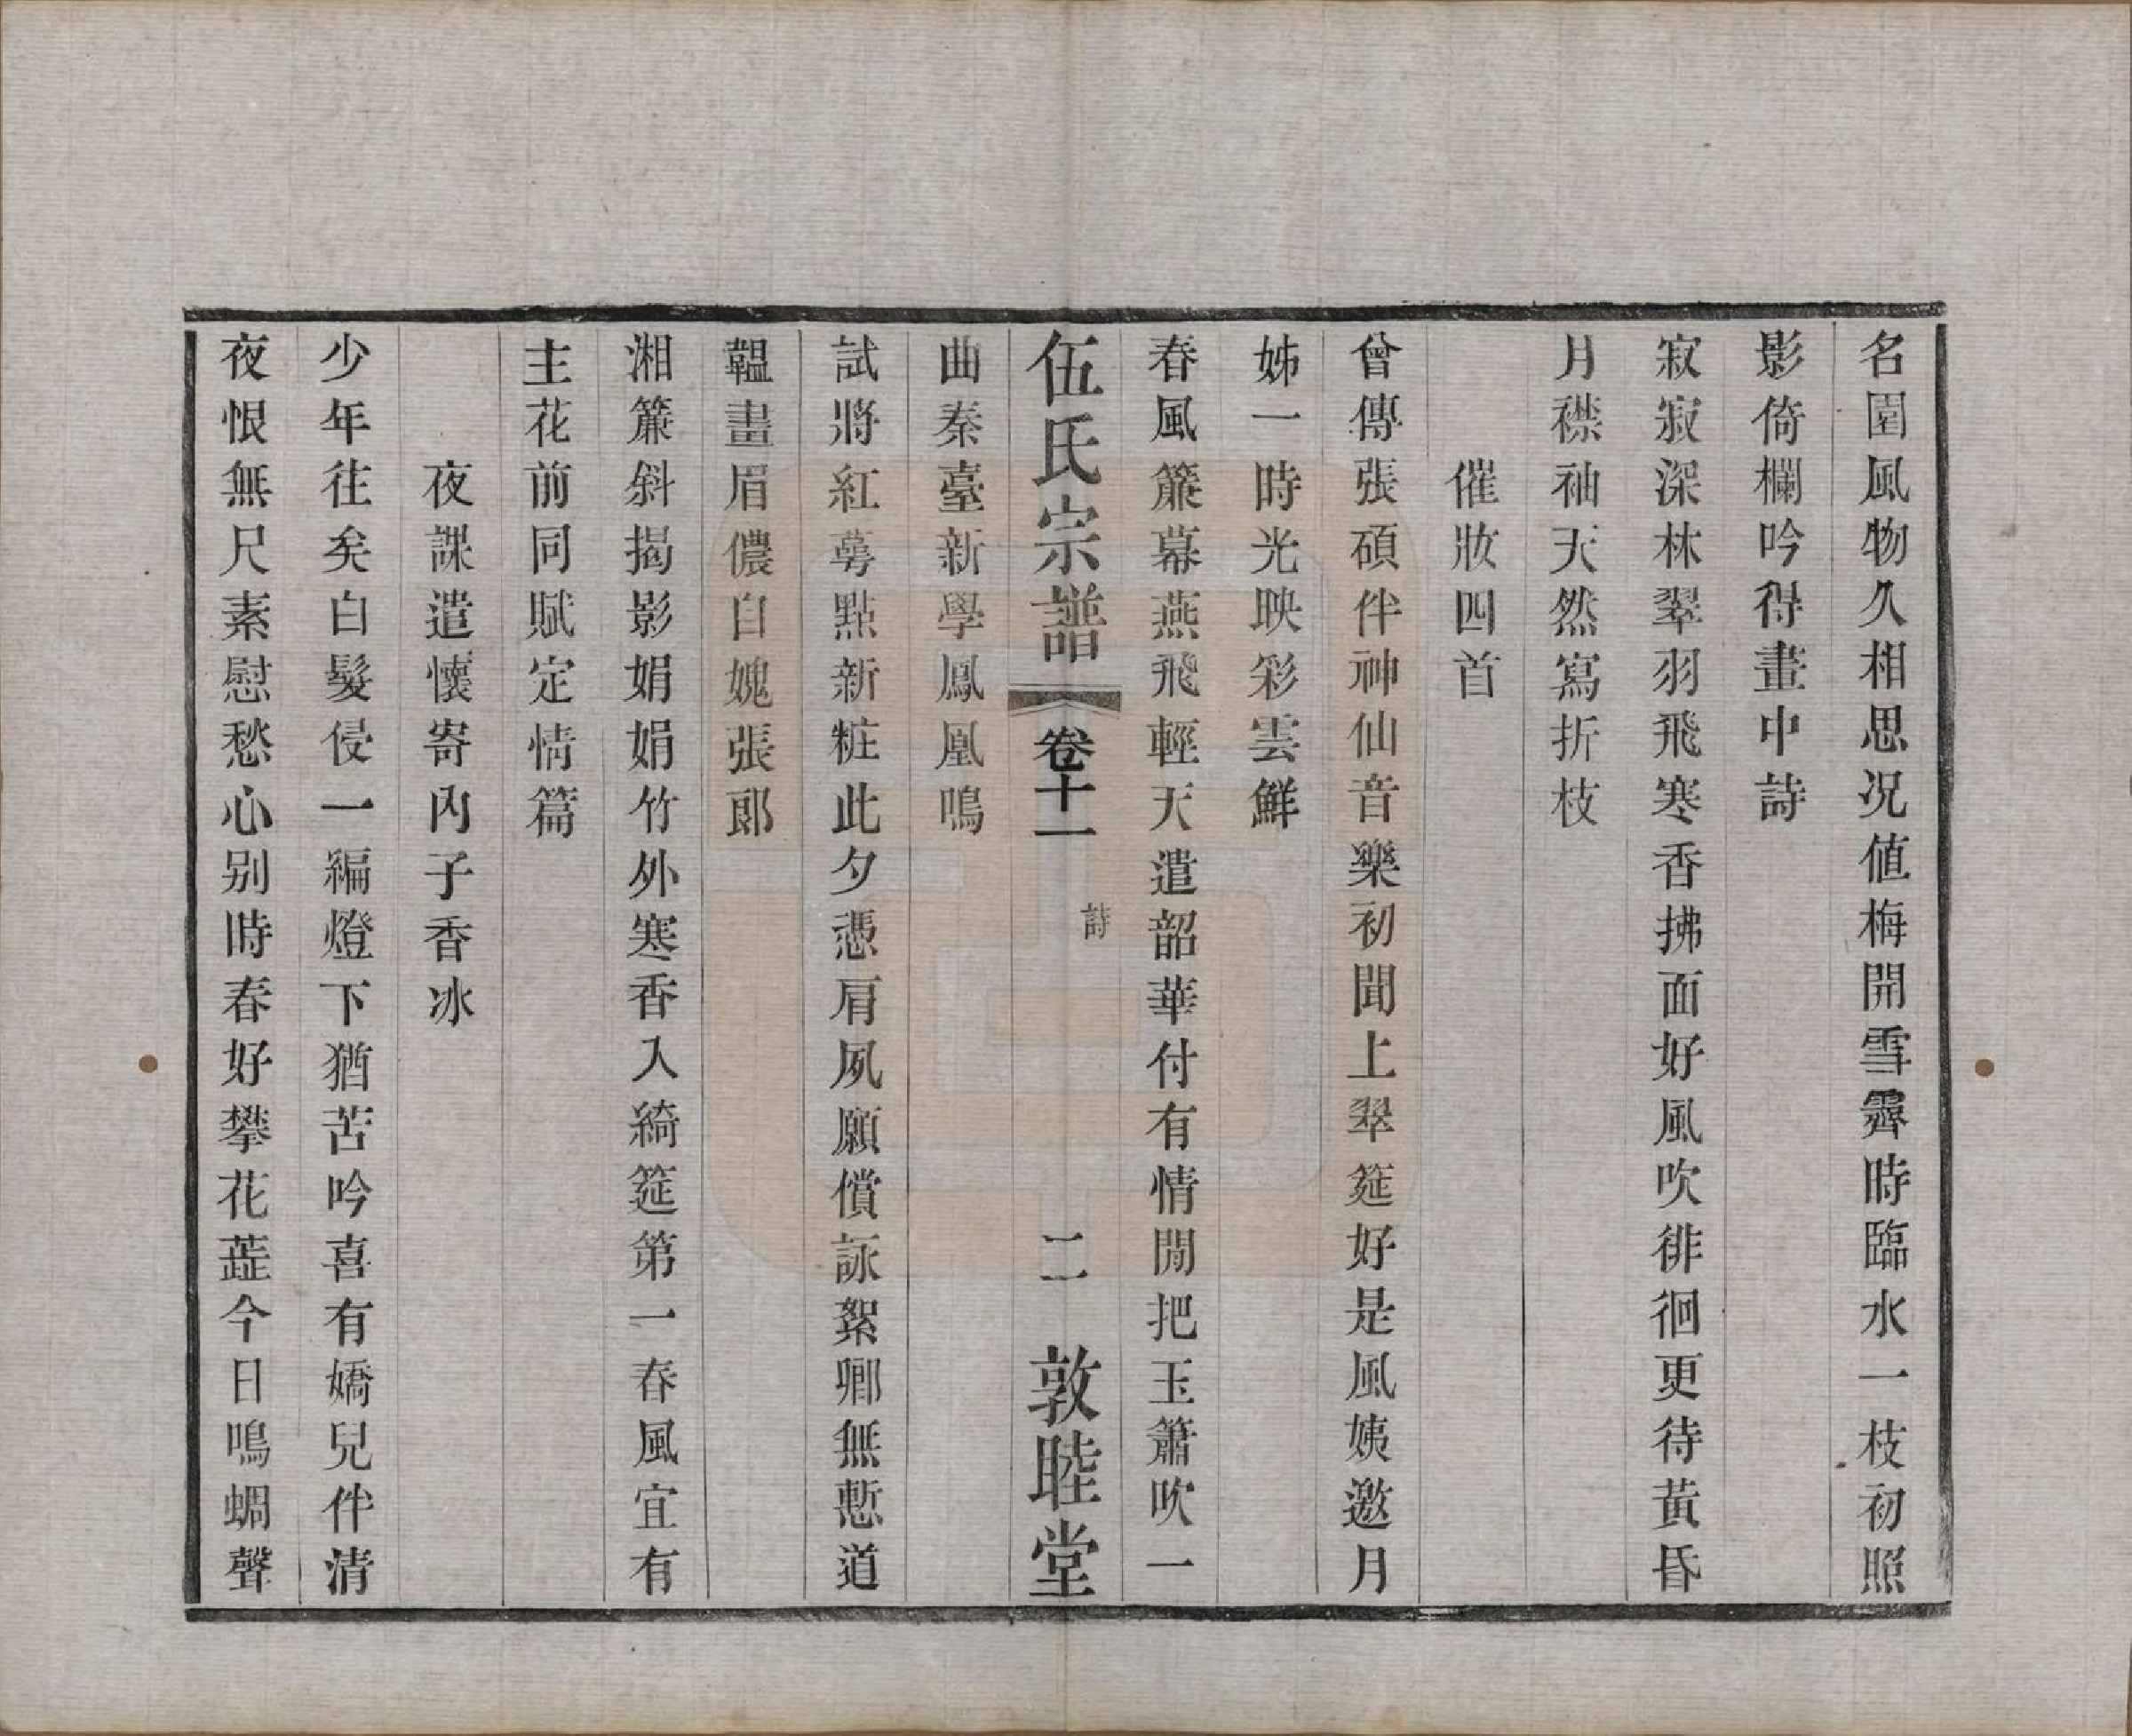 名園風物久相思况值梅開雪霽時臨水一枝初照
影倚欄吟得畫中詩
寂寂深林翠羽飛寒香拂面好風吹徘徊更待黃昏
月襟袖天然寫折枝
催妝四首
曾傳張碩伴神仙音樂初聞上翠筵好是風姨邀月
姊一時光映彩雲鮮
春風簾幕燕飛輕天遣韶華付有情閒把玉簫吹一
伍氏宗譜
卷十一
詩
二
敦睦堂
曲秦臺新學鳳凰鳴
試將紅萼點新粧此夕憑肩夙願償詠絮卿無慙道
韞畫眉儂自媿張郞
湘簾斜揭影娟娟竹外寒香入綺筵第一春風宜有
主花前同賦定情篇
夜課遣懷寄內子香冰
少年往矣白髮侵一編燈下猶苦吟喜有嬌兒伴清
夜恨無尺素慰愁心别時春好攀花蕋今日鳴蜩聲